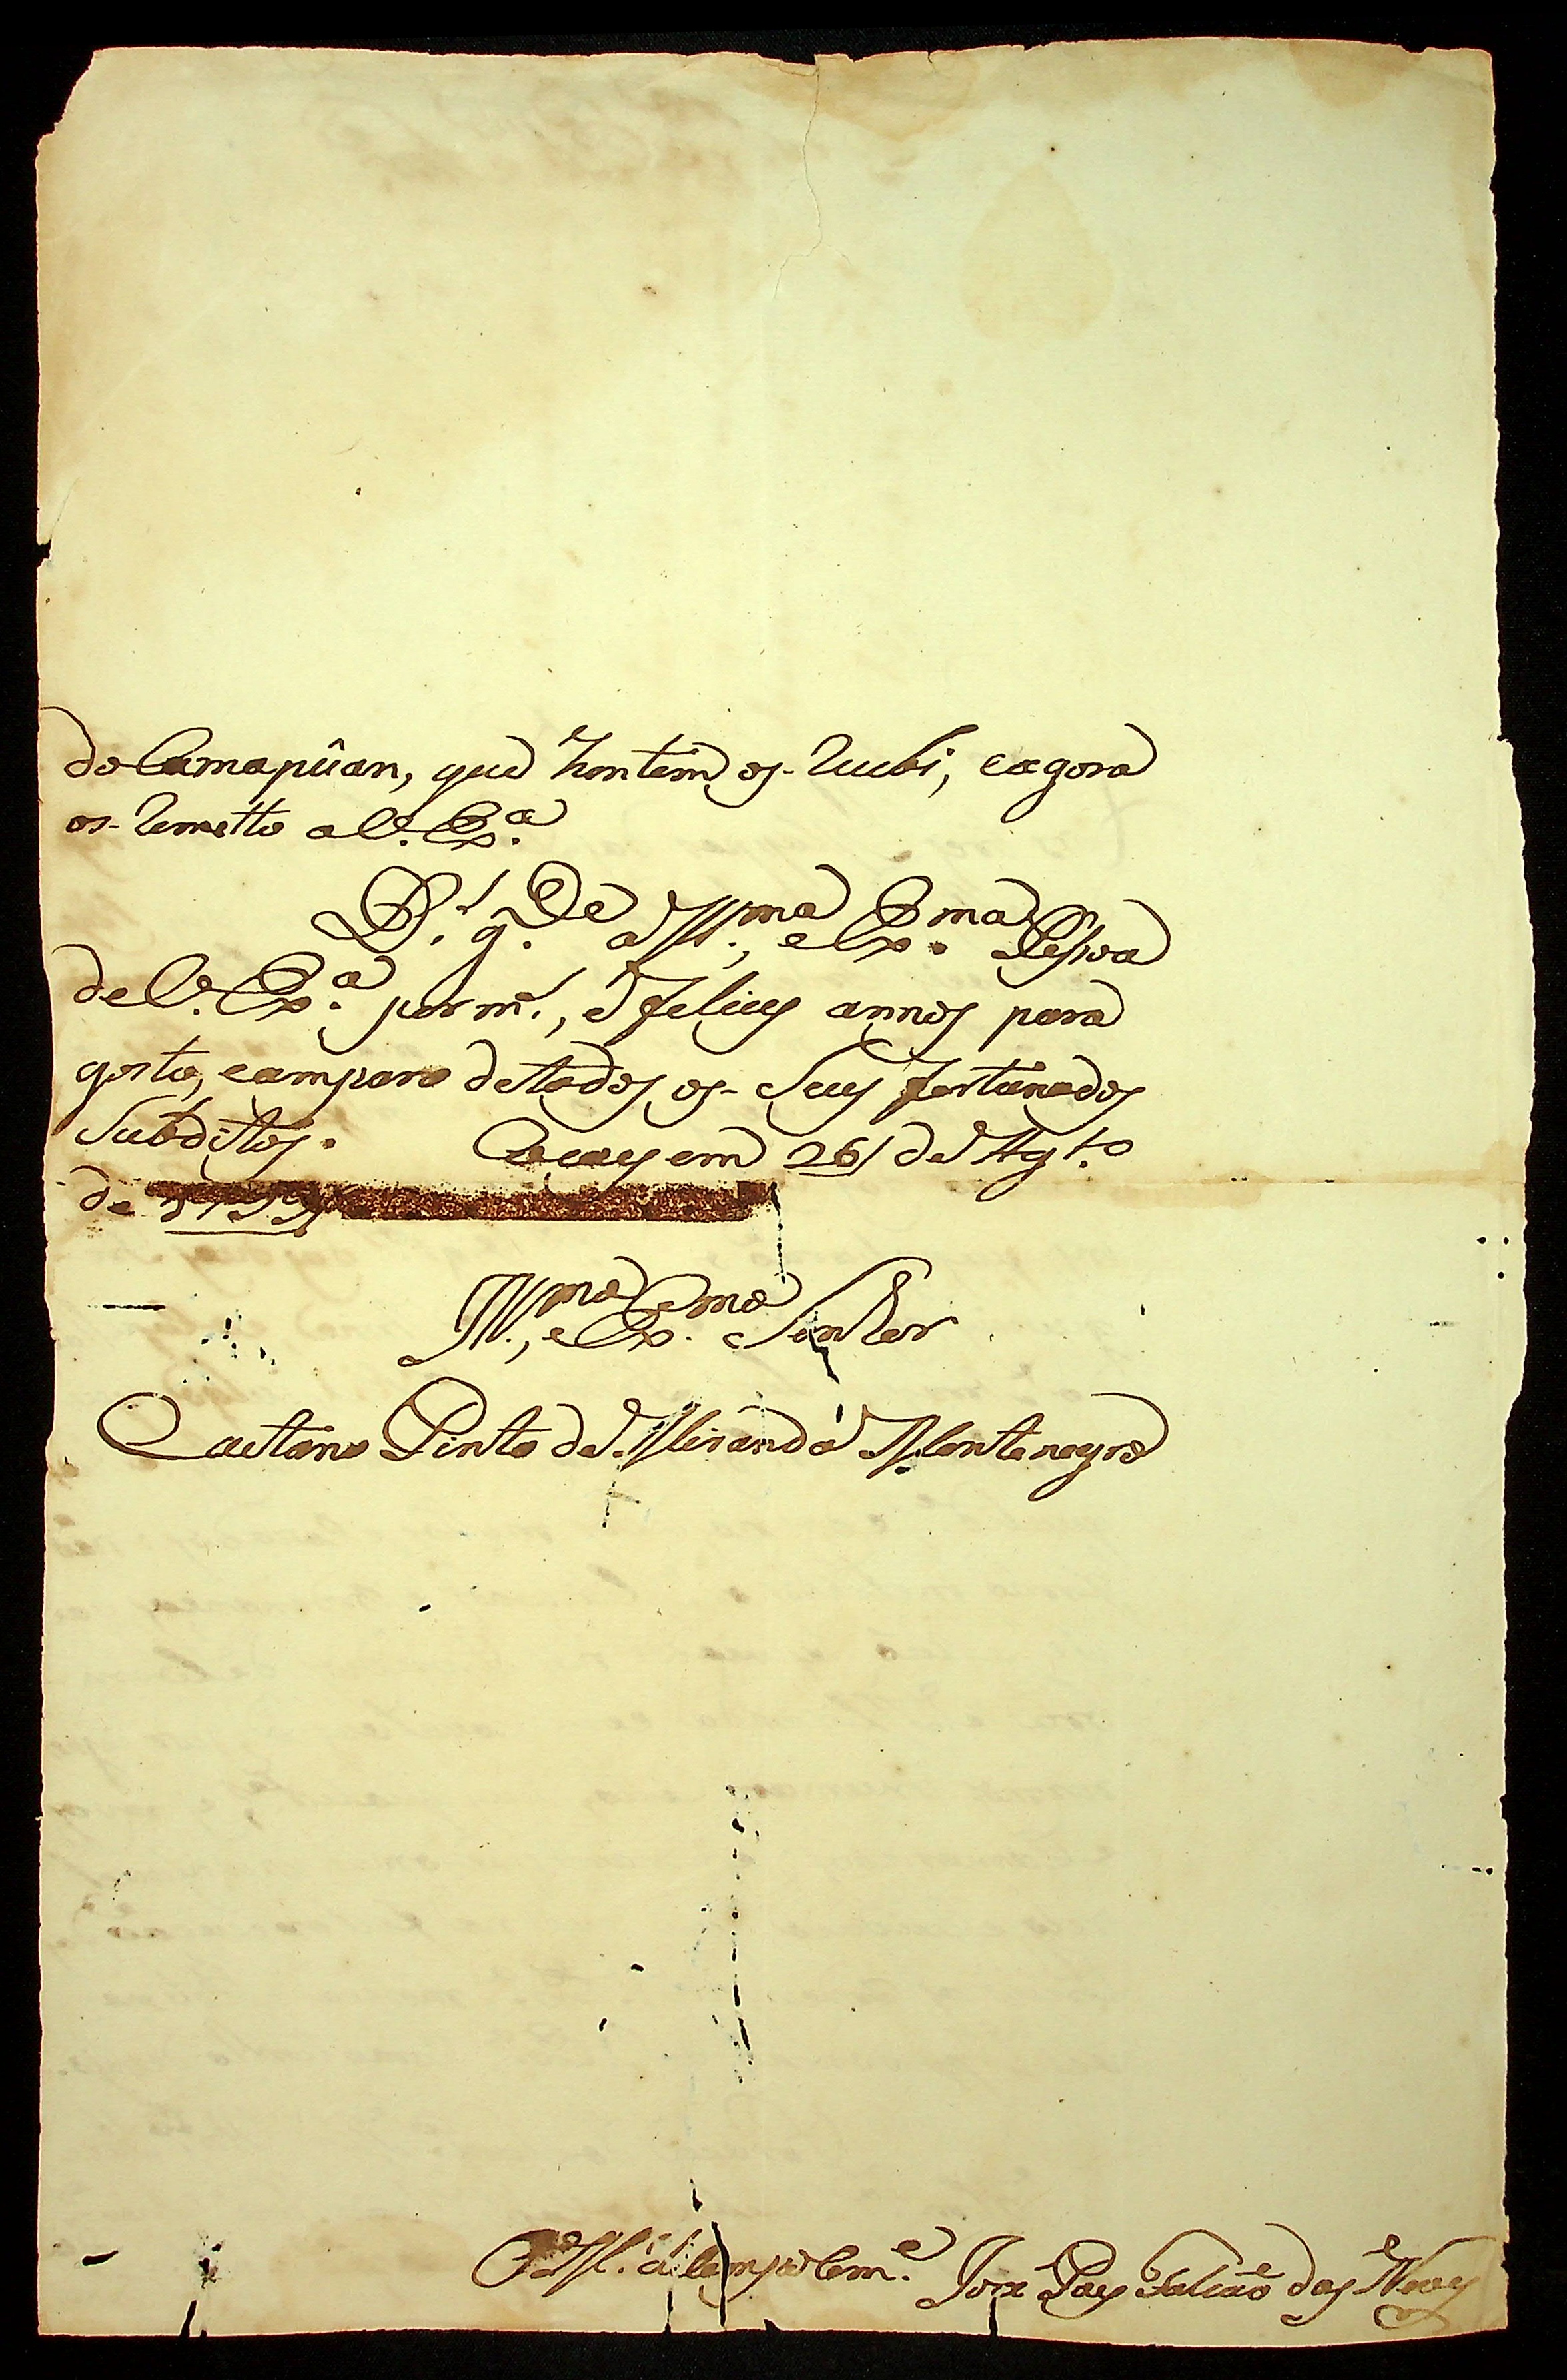 do Camapûan, que hontem os-recebi, e agora
os-remetto a V. Ex.ª
D.s g.de a Ill.ma, e Ex.ma Pessoa
de V. Ex.ª por m.s, e felices annos para
gosto, e amparo de todos os-seus fortunados
subditos. em 26 de Ag.to
de 1799
Ill.mo, e Ex.mo Senhor
Caetano Pinto de Miranda Montenegro
Joze Paes Falcaõ das Neves